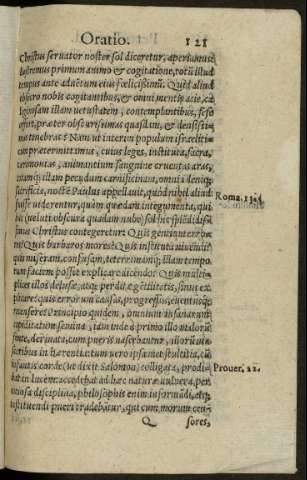 Oratio. 121
Christus seruator noster sol diceretur, aperiamus &
lustremus primum animo & cogitatione, totũ illud
tempus ante aduẽtum eius fœlicissimũ. Quid aliud
nobis cogitantibus, & omni mentis acie,
illam vetustatem, contemplantibus, sese
offert, præter obscurissimas quasdam, & densissi-
mas tenebras? Nam vt interim populum israeliti-
cum prætermittimus, cuius leges, instituta, sacra,
ceremonias, animantium sanguine cruentas aras,
quandam carnificinam, omnia deni
sacrificia, noctẽ Paulus appellauit, quòd nihil aliud
Roma. 13.
fuisse viderentur, quàm quædam integumenta, qui
bus (veluti obscura quadam nube) sol hic splẽdidis-
simus Christus contegeretur: Quis gentium erro-
res? Quis barbaros mores? Quis instituta viuendi?
quis miseram, confusam, teterrimamq; illam tempo
rum faciem possit explicare dicendo? Quis multi-
plices illos delusæ, atque perditæ gẽtilitatis, sinus ex
plicare? quis errorum causas, progressus, euentusque
recenseret? Principio quidem, omnium insaniarum
cupiditatum semina, iam inde à primo illo malorũ
fonte, deriuata, cum pueris nascebantur, illorũ
sentibus inhærentia: tum vero ipsamet stultitia, cũ
infantis corde (vt dixit Salomon) colligata, prodi-
Prouer. 22.
bat in lucem: accedebat ad hæc naturæ vulnera, per
uersa disciplina, philosophis enim informãdi, atque
instituendi pueri tradebãtur, qui cum morum cen-
Q sores,